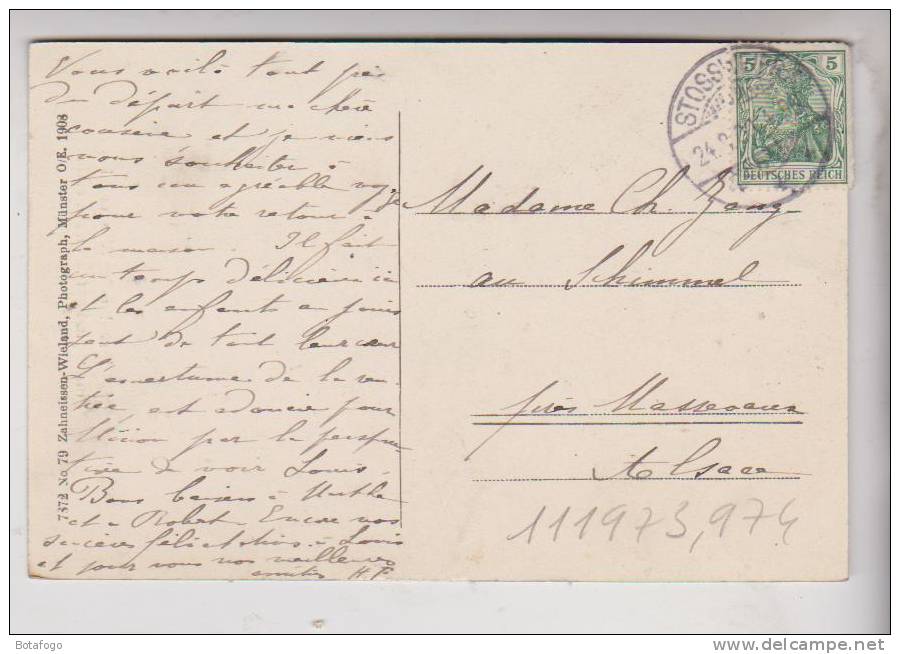 Vous voilà tout près
du départ ma chère
cousine et je viens
vous souhaiter à
tous un agréable voya
pour votre retour à
la maison. Il fait
un temps délicieux ici
et les enfants en jouis
sent de tout leur cœur
L'amertume de la ren-
trée, est adoucie pour
par la perspec
tive de voir Louis.
Bons baisers à Marthe
et à Robert. Encore nos
sincères félicitations à Louis
et pour vous nos meilleures
amitiés H. F.
7372 No. 79 Zahneissen-Wieland, Photograph, Münster O/E. 1908
STOSSW
24.
5 5
DEUTSCHES REICH
Madame Ch. Zang
au Schimmel
près Massevaux
Alsace
111973,974
Botafogo
www.delcampe.net